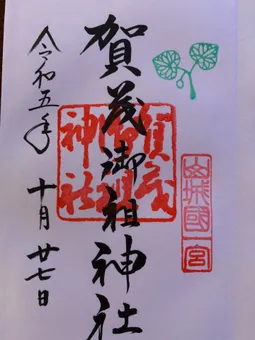 山城國一宮
賀茂御祖神社
賀茂
御祖
神社
令和五年 十月廿七日